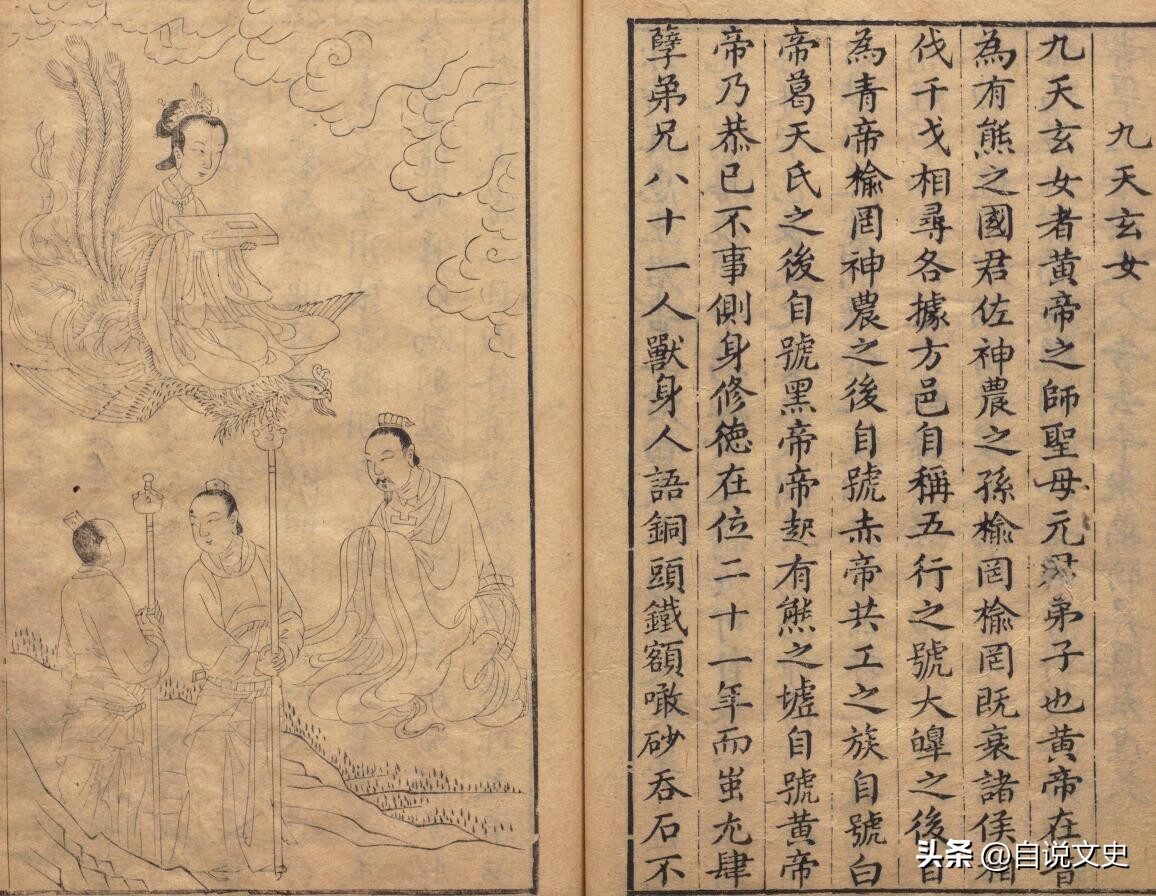 九天玄女
九天玄女者黃帝之師聖母元君弟子也黃帝在昔
為有熊之國君佐神農之孫榆罔榆罔既衰諸侯相
伐干戈相尋各據方邑自稱五行之號大皥之後自
為青帝榆罔神農之後自號赤帝共工之族自號白
帝葛天氏之後自號黑帝帝起有熊之墟自號黃帝
帝乃恭己不事側身修德在位二十一年而蚩尤肆
孽弟兄八十一人獸身人語銅頭鐵額噉砂吞石不
头条 @自说文史